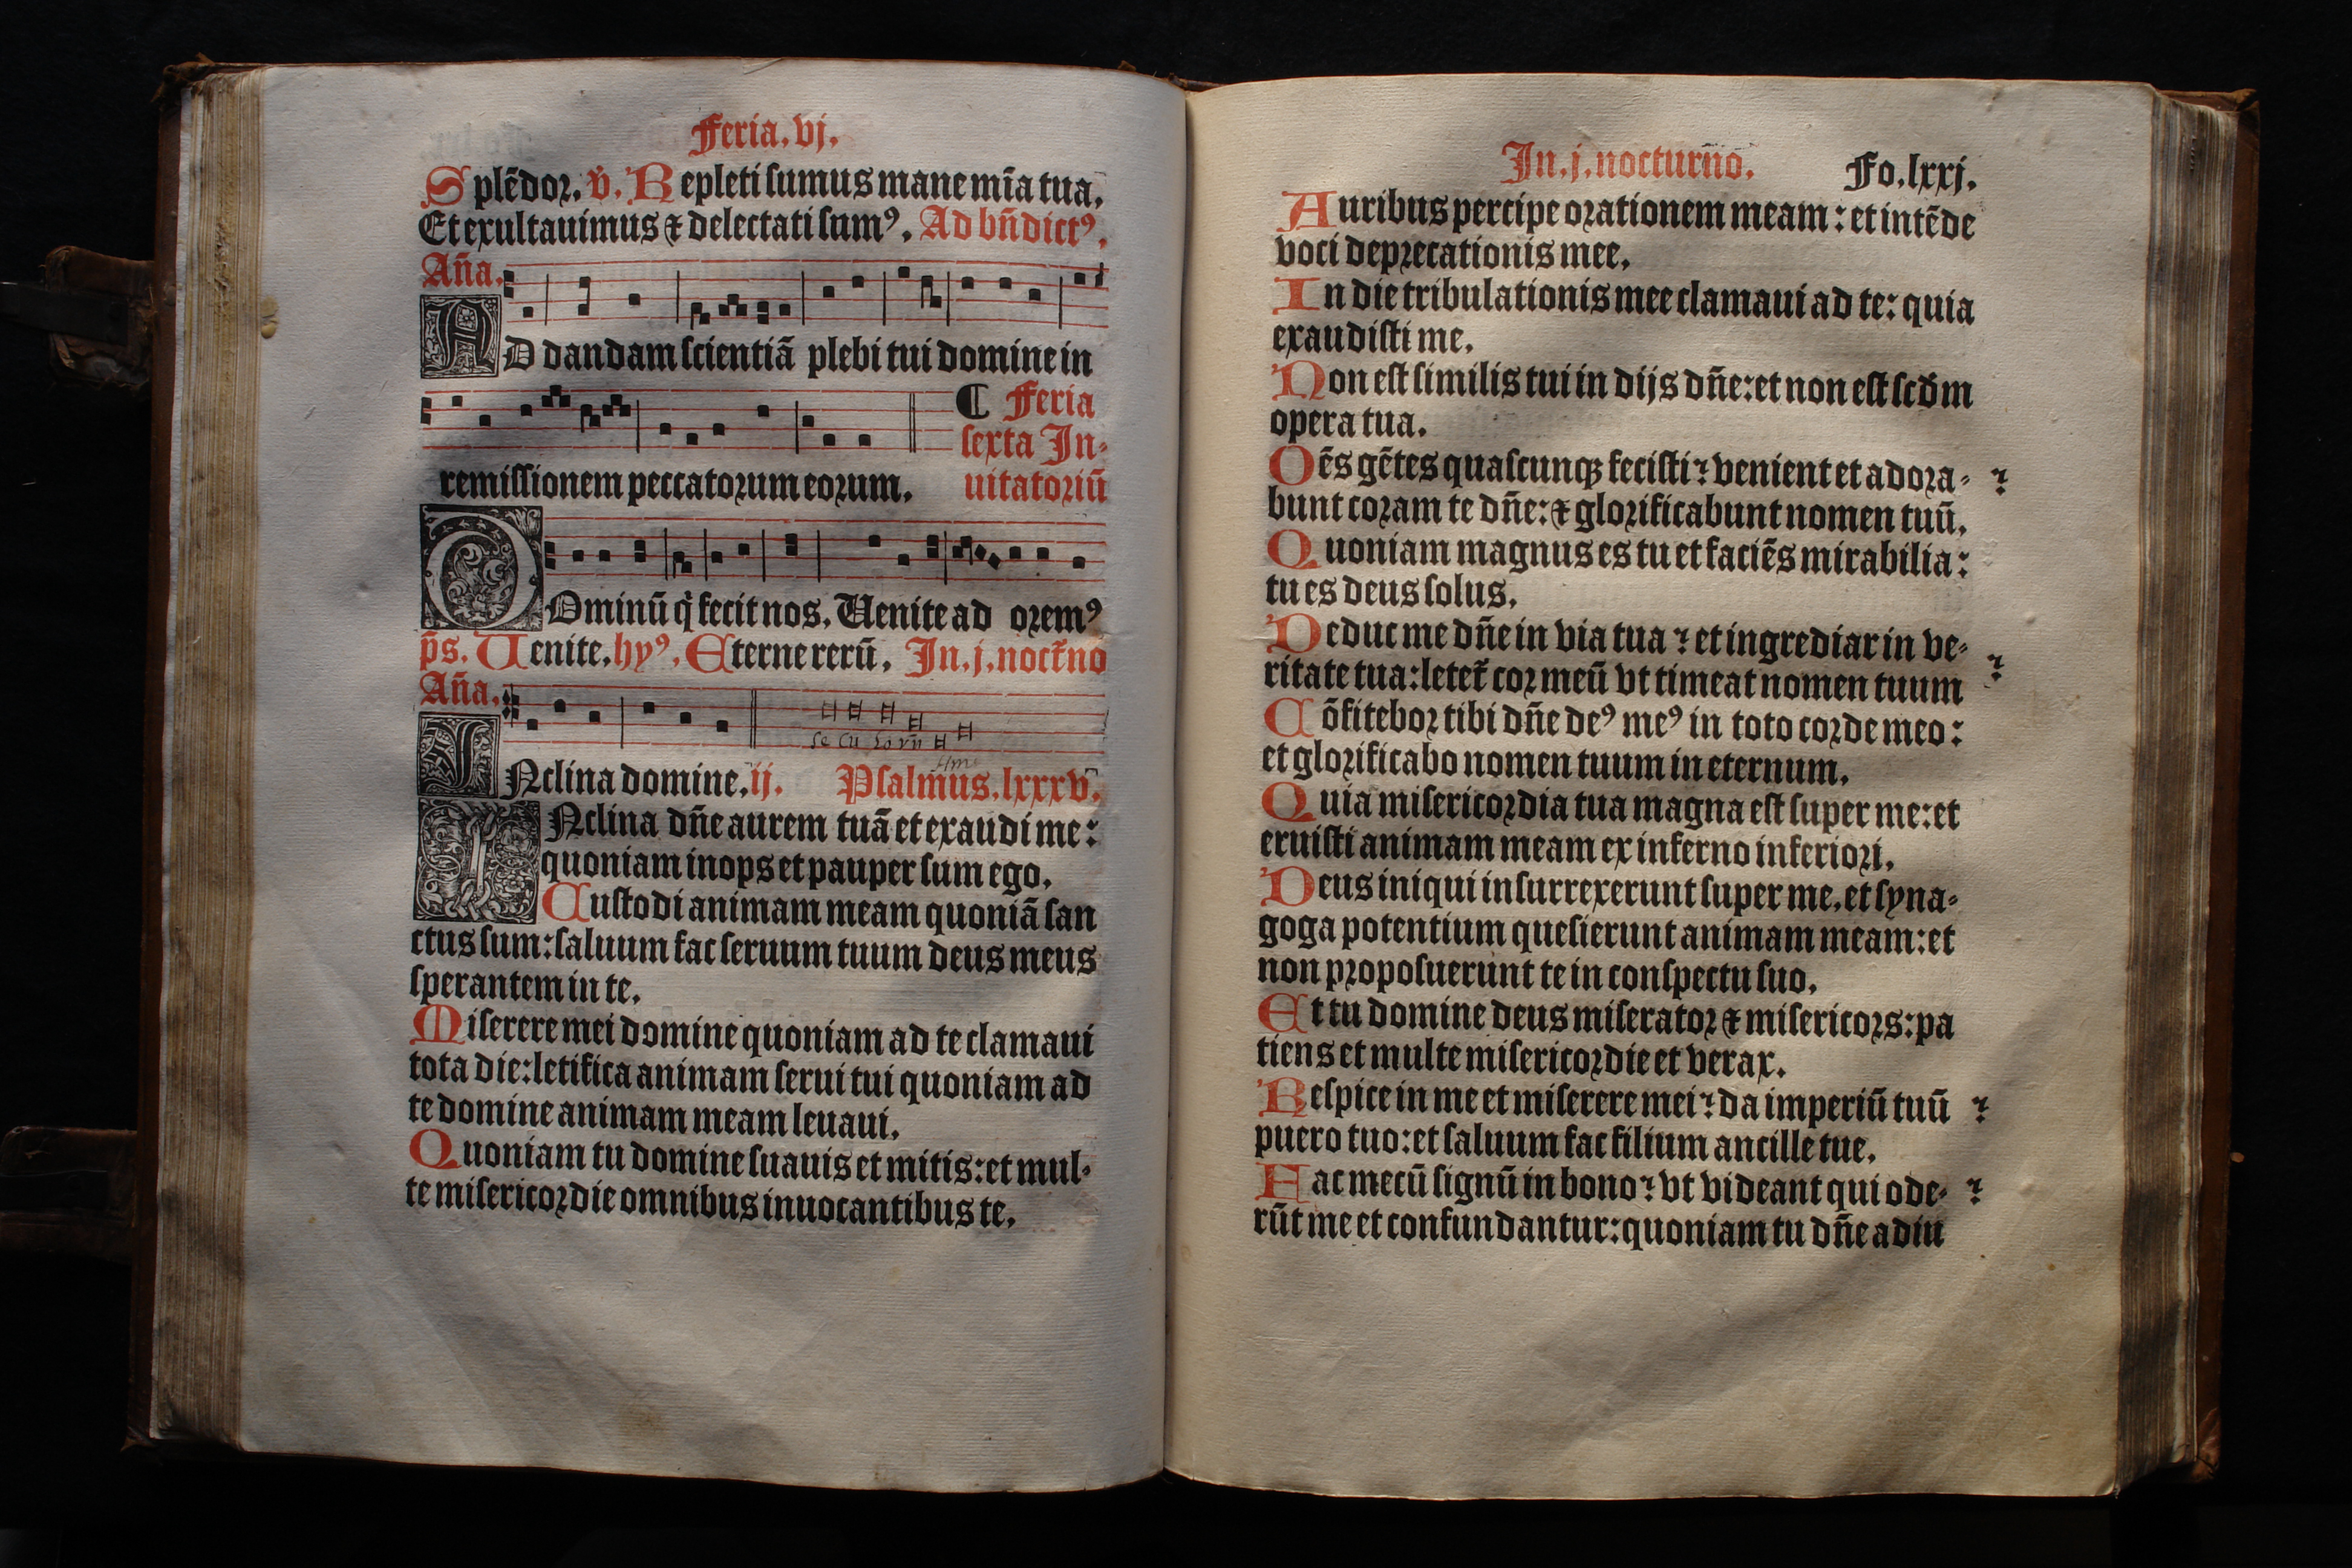 Feria. vj.
Splēdor. v̄. Repleti sumus mane mīa tua.
Et exultauimus ⁊ delectati sumꝰ. Ad bn̄dictꝰ.
An̄a.
AD dandam scientiā plebi tui domine in
¶ Feria
sexta In-
remissionem peccatorum eorum. uitatoriū
DOminū q̇ fecit nos. Uenite ad oremꝰ
p̄s. Uenite. hyꝰ. Eterne rerū. In. j. noct̄no
An̄a.
se cu lo rū
Am
INclina domine. ij. Psalmus. lxxxv.
INclina dn̄e aurem tuā et exaudi me:
quoniam inops et pauper sum ego.
Custodi animam meam quoniā san
ctus sum: saluum fac seruum tuum deus meus
sperantem in te.
Miserere mei domine quoniam ad te clamaui
tota die: letifica animam serui tui quoniam ad
te domine animam meam leuaui.
Quoniam tu domine suauis et mitis: et mul-
te misericordie omnibus inuocantibus te.
In. j. nocturn̄o. Fo. lxxj.
Auribus percipe orationem meam: et intēde
voci deprecationis mee.
In die tribulationis mee clamaui ad te: quia
exaudisti me.
Non est similis tui in dijs dn̄e: et non est scd̄m
opera tua.
Oēs gētes quascunqꝫ fecisti? venient et adora- ?
bunt coram te dn̄e: ⁊ glorificabunt nomen tuū.
Quoniam magnus es tu et faciēs mirabilia:
tu es deus solus.
Deduc me dn̄e in via tua? et ingrediar in ve- ?
ritate tua: letet̄ cor meū vt timeat nomen tuum
Cōfitebor tibi dn̄e deꝰ meꝰ in toto corde meo:
et glorificabo nomen tuum in eternum.
Quia misericordia tua magna est super me: et
eruisti animam meam ex inferno inferiori.
Deus iniqui insurrexerunt super me, et syna-
goga potentium quesierunt animam meam: et
non proposuerunt te in conspectu suo.
Et tu domine deus miserator ⁊ misericors: pa
tiens et multe misericordie et verax.
Respice in me et miserere mei? da imperiū tuū ?
puero tuo: et saluum fac filium ancille tue.
Fac mecū signū in bono? vt videant qui ode- ?
rūt me et confundantur: quoniam tu dn̄e adiu